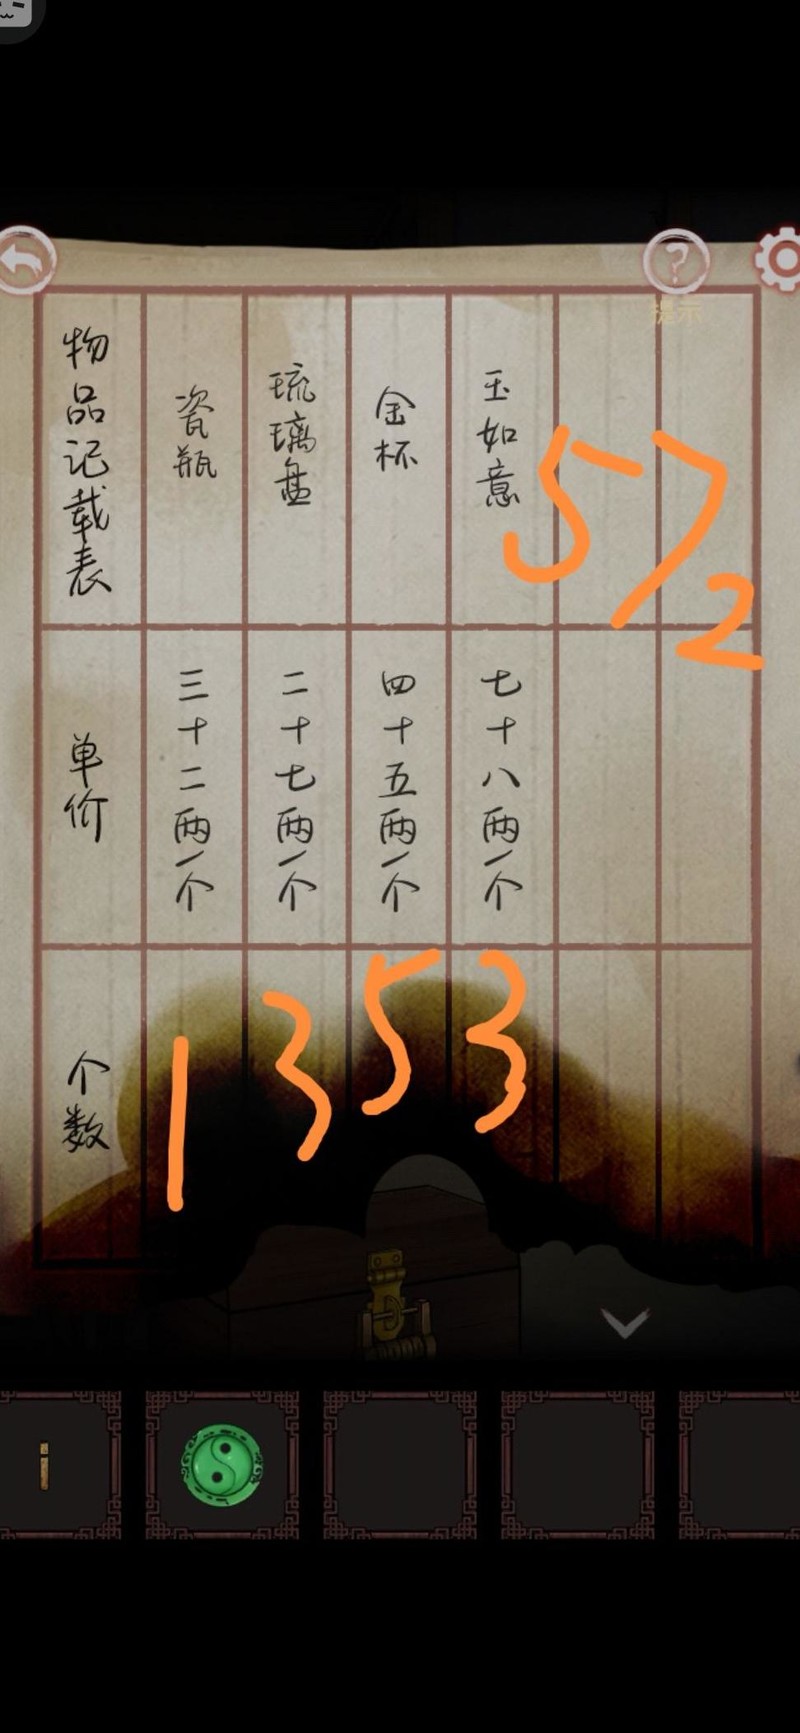 物品记载表
瓷瓶
琉璃盏
金杯
玉如意
572
提示
单价
三十二两一个
二十七两一个
四十五两一个
七十八两一个
个数
1 3 5 3